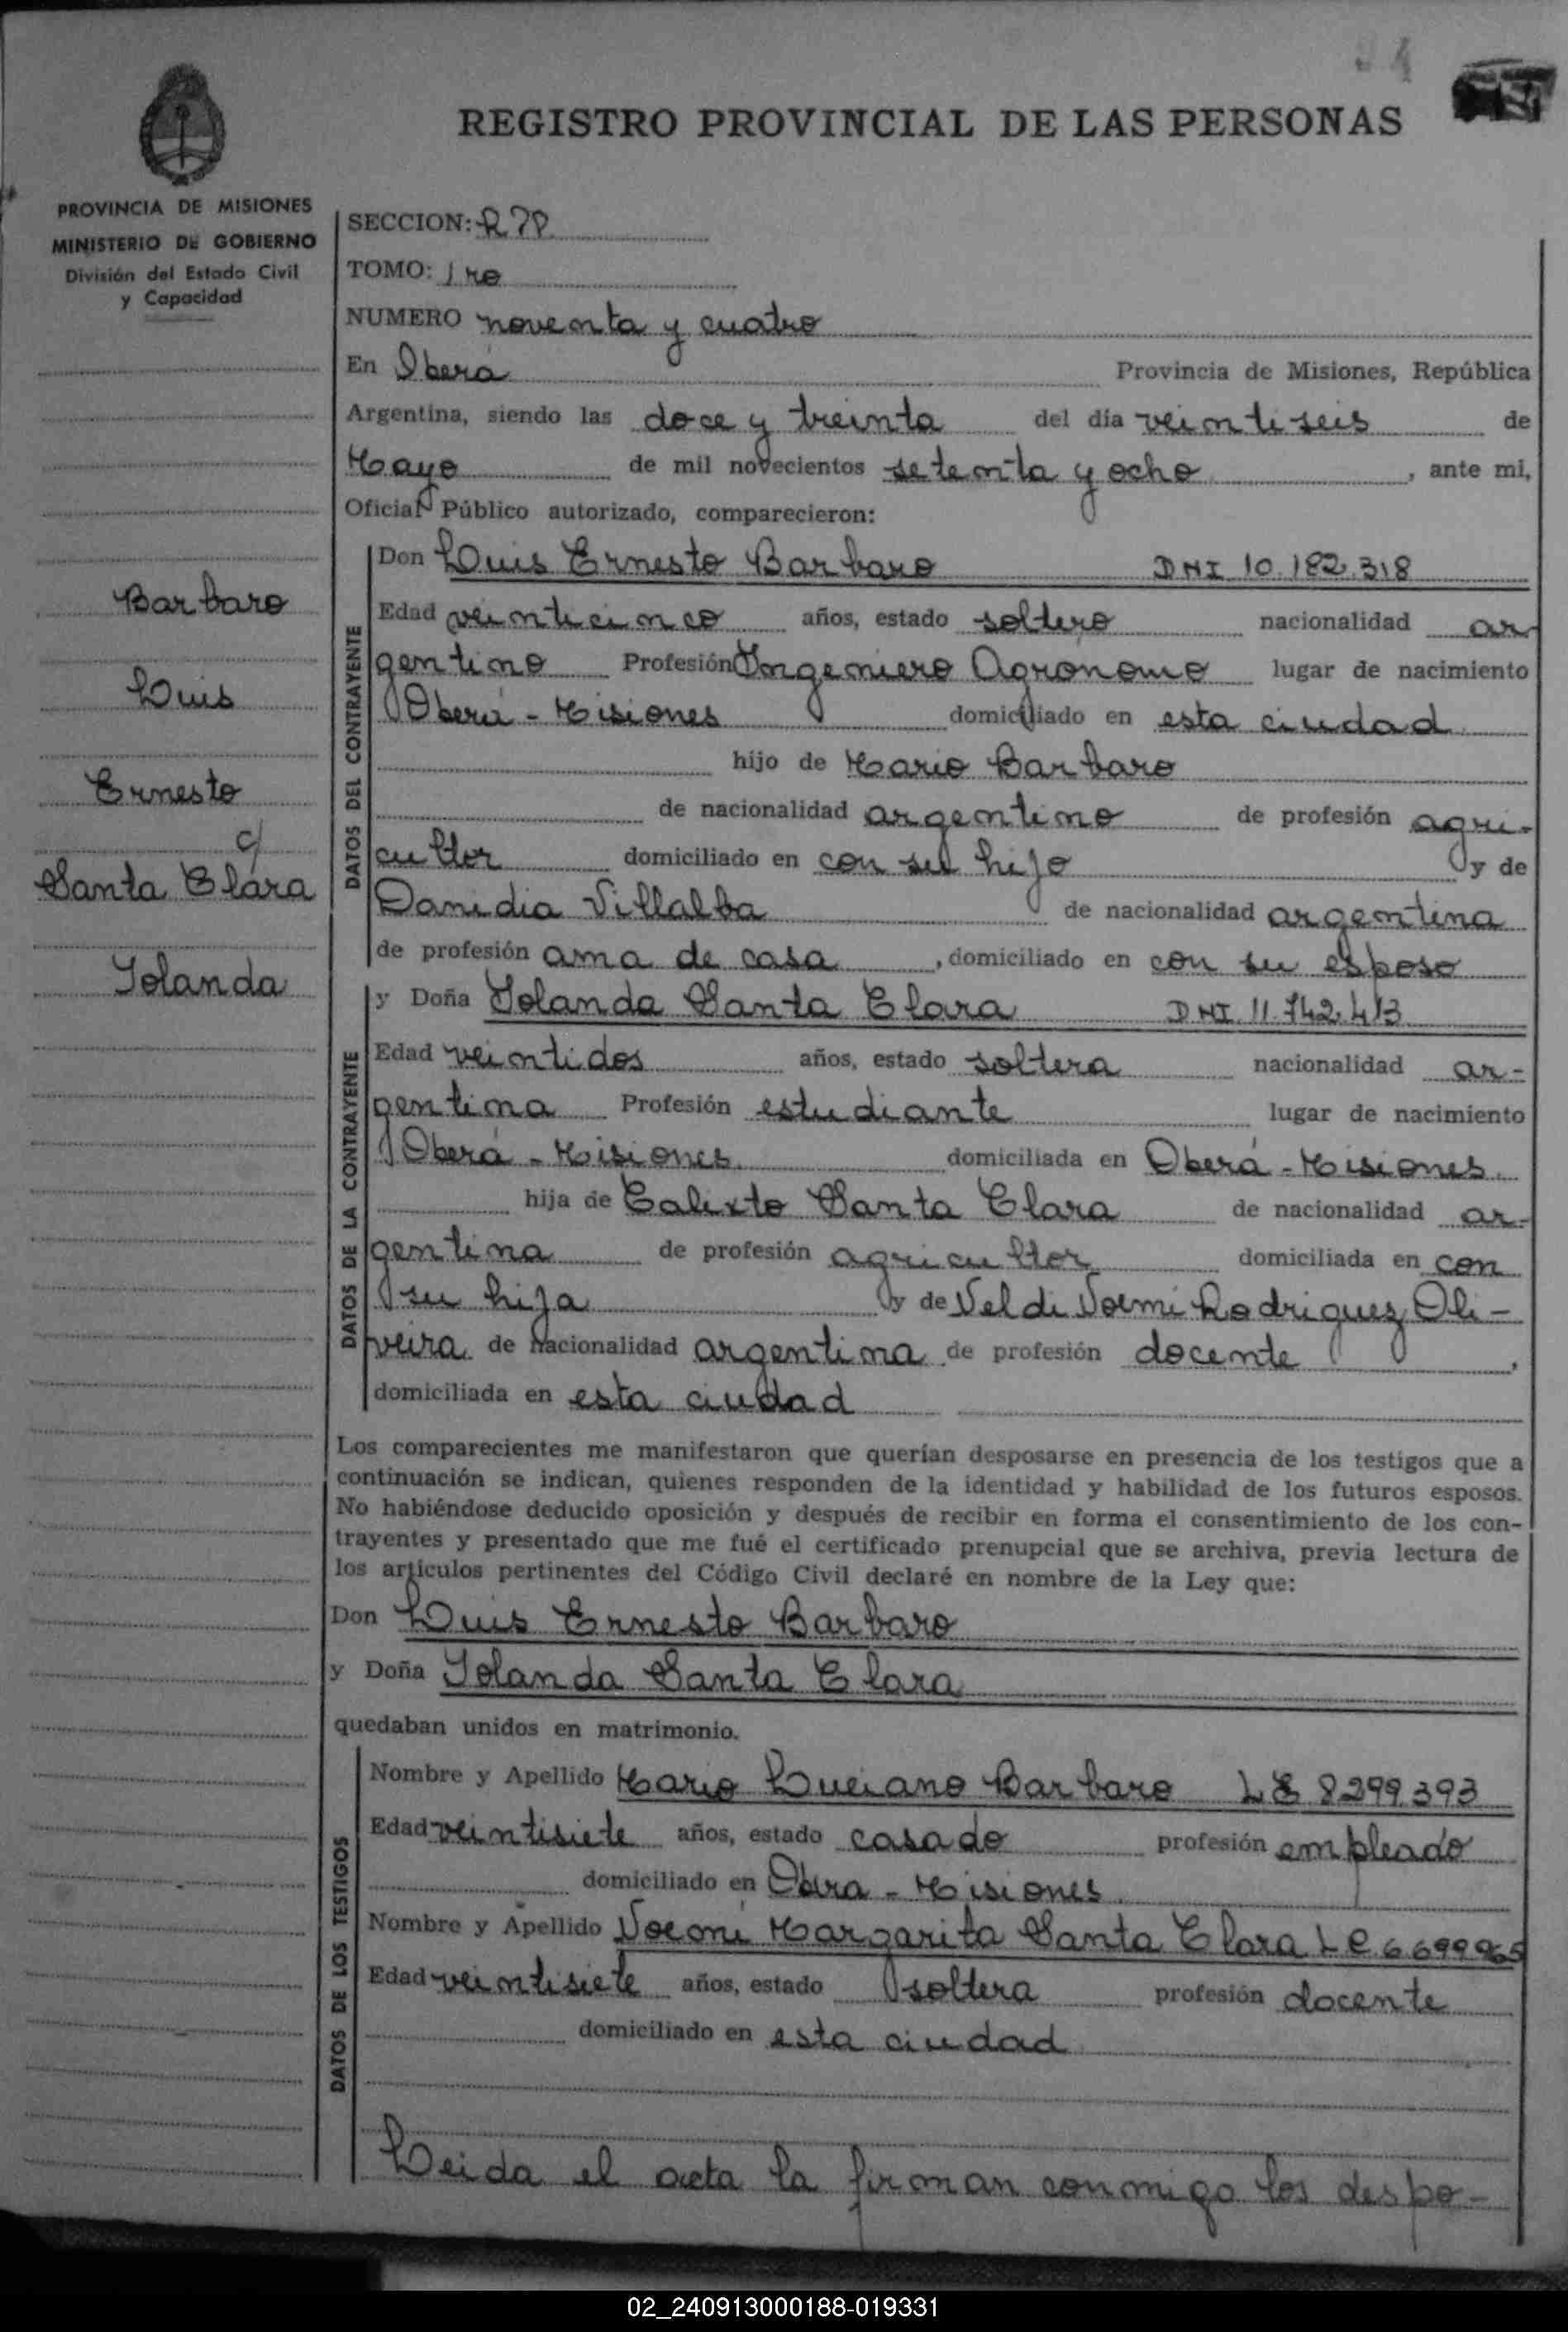 94
REGISTRO PROVINCIAL DE LAS PERSONAS
PROVINCIA DE MISIONES
MINISTERIO DE GOBIERNO
División del Estado Civil
y Capacidad
Barbaro
Luis
Ernesto
c/
Santa Clara
Iolanda
SECCION: R.P.P.
TOMO: 1ro
NUMERO noventa y cuatro
En Oberá Provincia de Misiones, República
Argentina, siendo las doce y treinta del día veintiseis de
Mayo de mil novecientos setenta y ocho, ante mi,
Oficial Público autorizado, comparecieron:
DATOS DEL CONTRAYENTE
Don Luis Ernesto Barbaro DNI 10.182.318
Edad veinticinco años, estado soltero nacionalidad ar
gentino Profesión Ingeniero Agrónomo lugar de nacimiento
Oberá - Misiones domiciliado en esta ciudad
hijo de Mario Barbaro
de nacionalidad argentino de profesión agri-
cultor domiciliado en con su hijo y de
Danidia Villalba de nacionalidad argentina
de profesión ama de casa, domiciliado en con su esposo
DATOS DE LA CONTRAYENTE
y Doña Iolanda Santa Clara DNI 11.742.413
Edad veintidos años, estado soltera nacionalidad ar-
gentina Profesión estudiante lugar de nacimiento
Oberá - Misiones domiciliada en Oberá - Misiones
hija de Calixto Santa Clara de nacionalidad ar-
gentina de profesión agricultor domiciliada en con
su hija y de Veldi Noemi Rodriguez Oli-
veira de nacionalidad argentina de profesión docente,
domiciliada en esta ciudad
Los comparecientes me manifestaron que querían desposarse en presencia de los testigos que a
continuación se indican, quienes responden de la identidad y habilidad de los futuros esposos.
No habiéndose deducido oposición y después de recibir en forma el consentimiento de los con-
trayentes y presentado que me fué el certificado prenupcial que se archiva, previa lectura de
los artículos pertinentes del Código Civil declaré en nombre de la Ley que:
Don Luis Ernesto Barbaro
y Doña Iolanda Santa Clara
quedaban unidos en matrimonio.
DATOS DE LOS TESTIGOS
Nombre y Apellido Mario Luciano Barbaro LE 8299.393
Edad veintisiete años, estado casado profesión empleado
domiciliado en Obera - Misiones
Nombre y Apellido Noemi Margarita Santa Clara LC 6699965
Edad veintisiete años, estado soltera profesión docente
domiciliado en esta ciudad
Leida el acta la firman conmigo los despo-
02_240913000188-019331